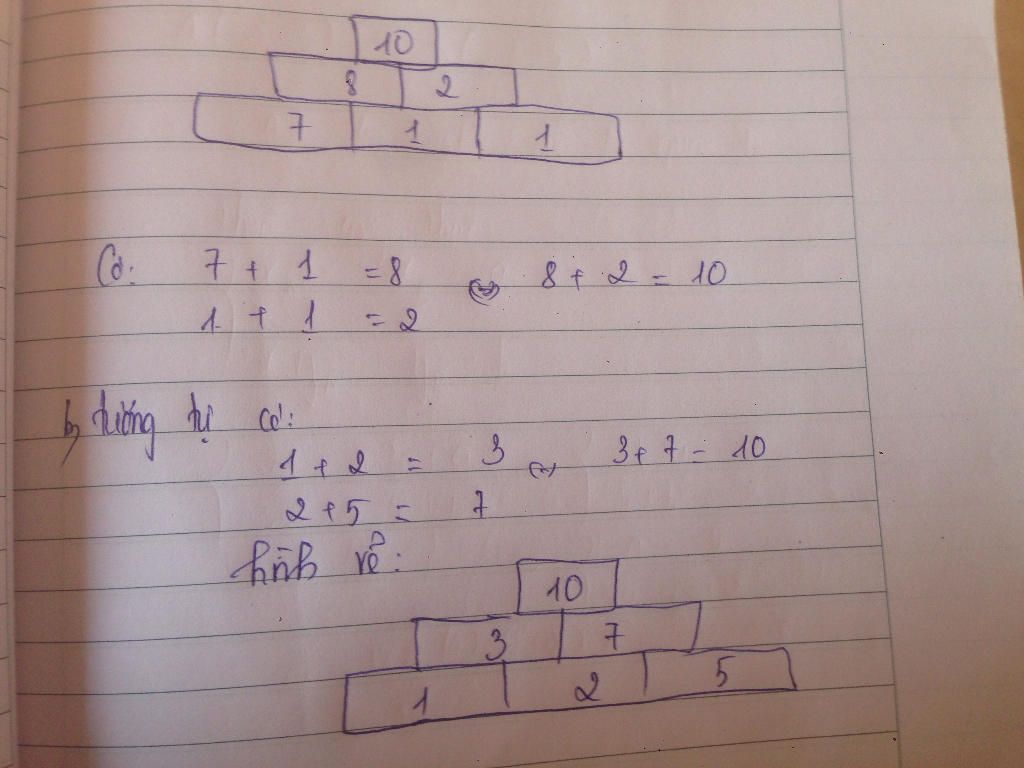 10
8 2
7 1 1
Có: 7 + 1 = 8 (=) 8 + 2 = 10
1 + 1 = 2
b, tương tự có:
1 + 2 = 3 (=) 3 + 7 = 10
2 + 5 = 7
hình vẽ:
10
3 7
1 2 5